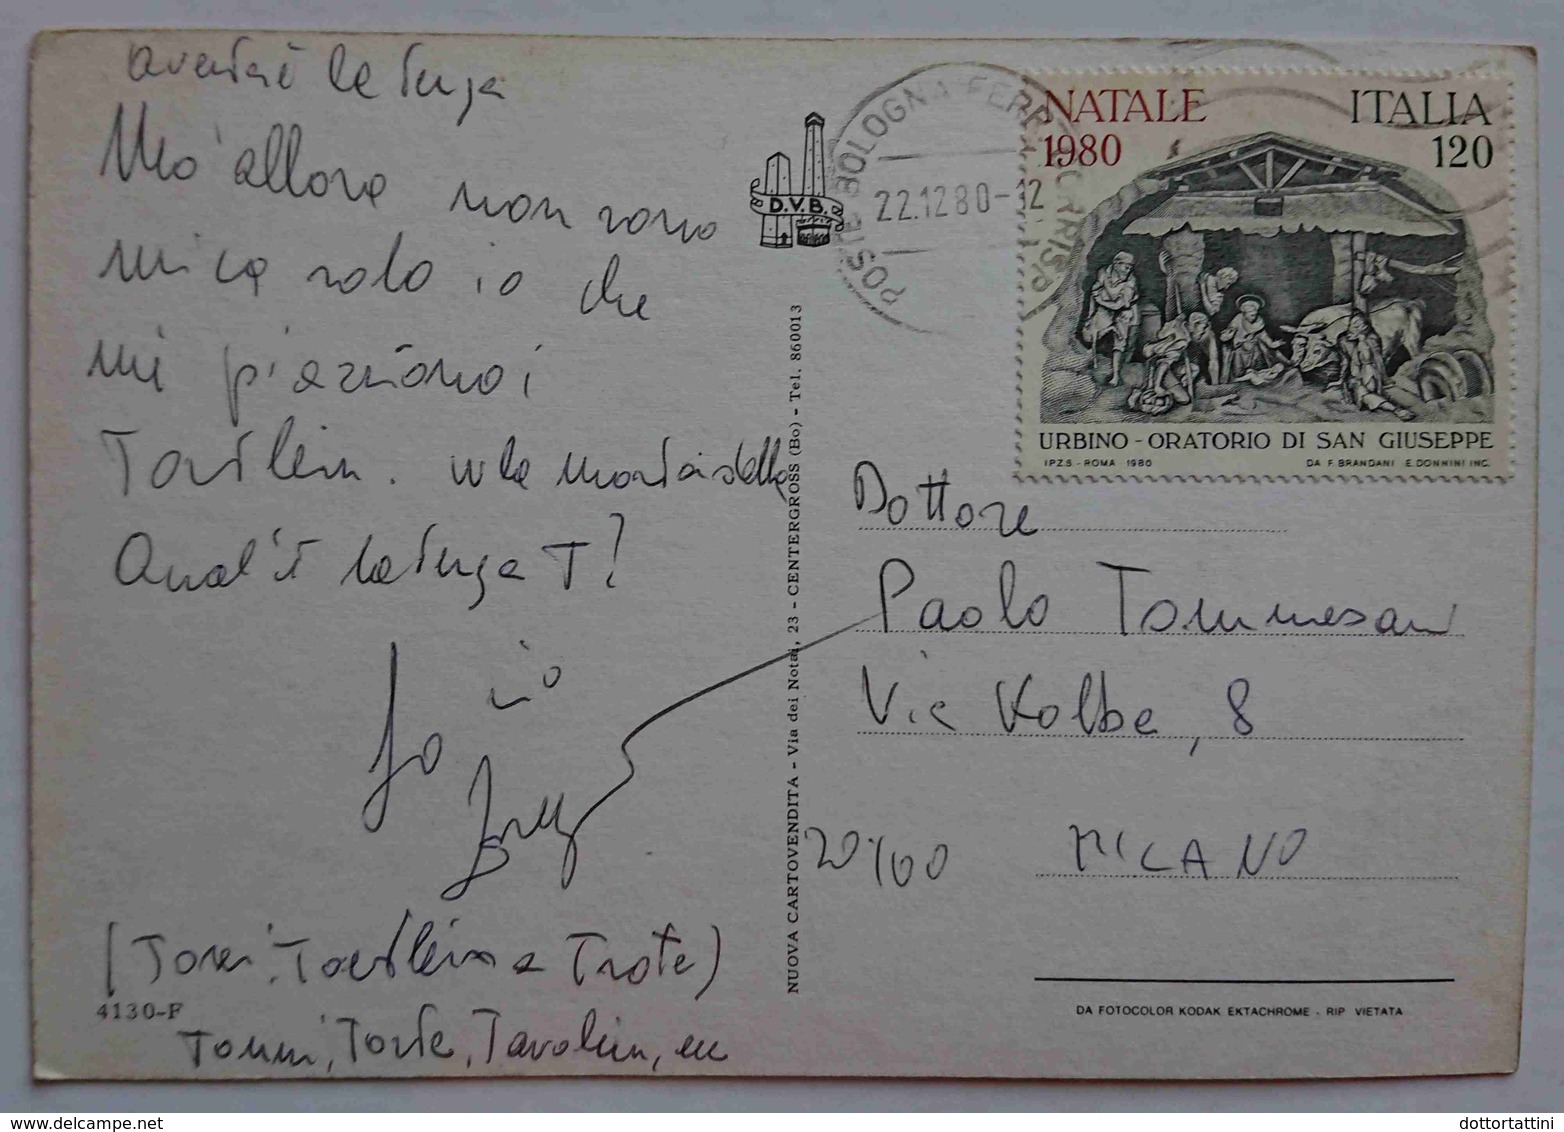 le terza
Mo' allora non sono
mica solo io che
mi piaziono i
Tortlein. w la mortaidella
Qual'è la terza T?
io
(Torri, Tortlein e Trote)
Tommi, Torte, Tavolin, ecc
4130-F
D.V.B.
NUOVA CARTOVENDITA - Via dei Notai, 23 - CENTERGROSS (Bo) - Tel. 860013
POSTE BOLOGNA FERR. CORRISP.
22.12.80-12
NATALE ITALIA
1980 120
URBINO - ORATORIO DI SAN GIUSEPPE
I.P.Z.S. - ROMA 1980 DA F. BRANDANI E. DONNINI INC.
Dottore
Paolo Tommesani
Via Kolbe, 8
20100 MILANO
DA FOTOCOLOR KODAK EKTACHROME - RIP VIETATA
dottortattini